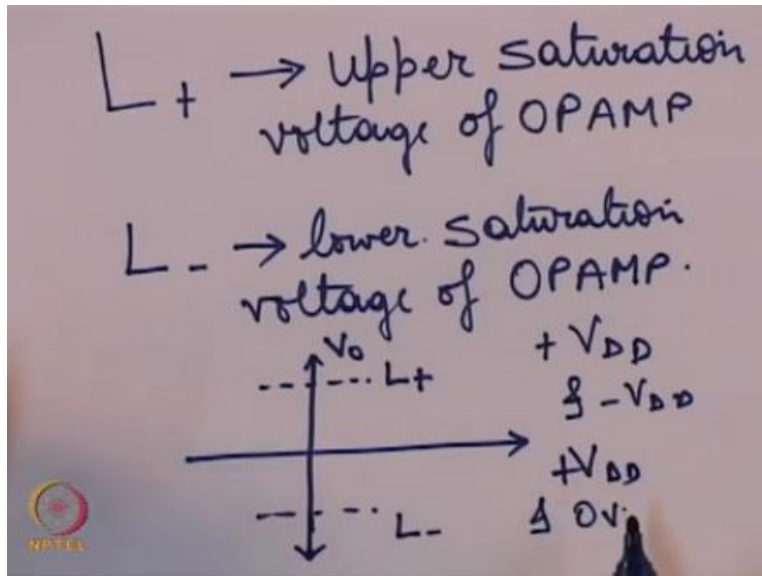 L+ → Upper saturation
voltage of OPAMP
L- → lower. saturation
voltage of OPAMP.
Vo
L+
L-
+ VDD
& -VDD
+VDD
& 0V.
NPTEL